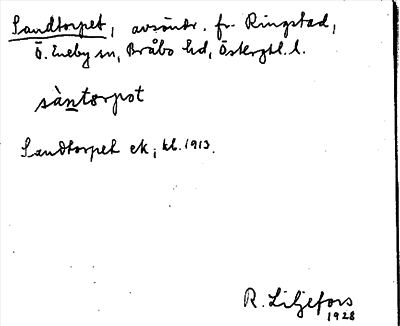 Sandtorpet, avsöndr. fr. Ringstad,
Ö. Eneby sn, Bråbo hd, Östergtl. l.
sàntorpot
Sandtorpet ek; kl. 1913.
R. Liljefors
1928